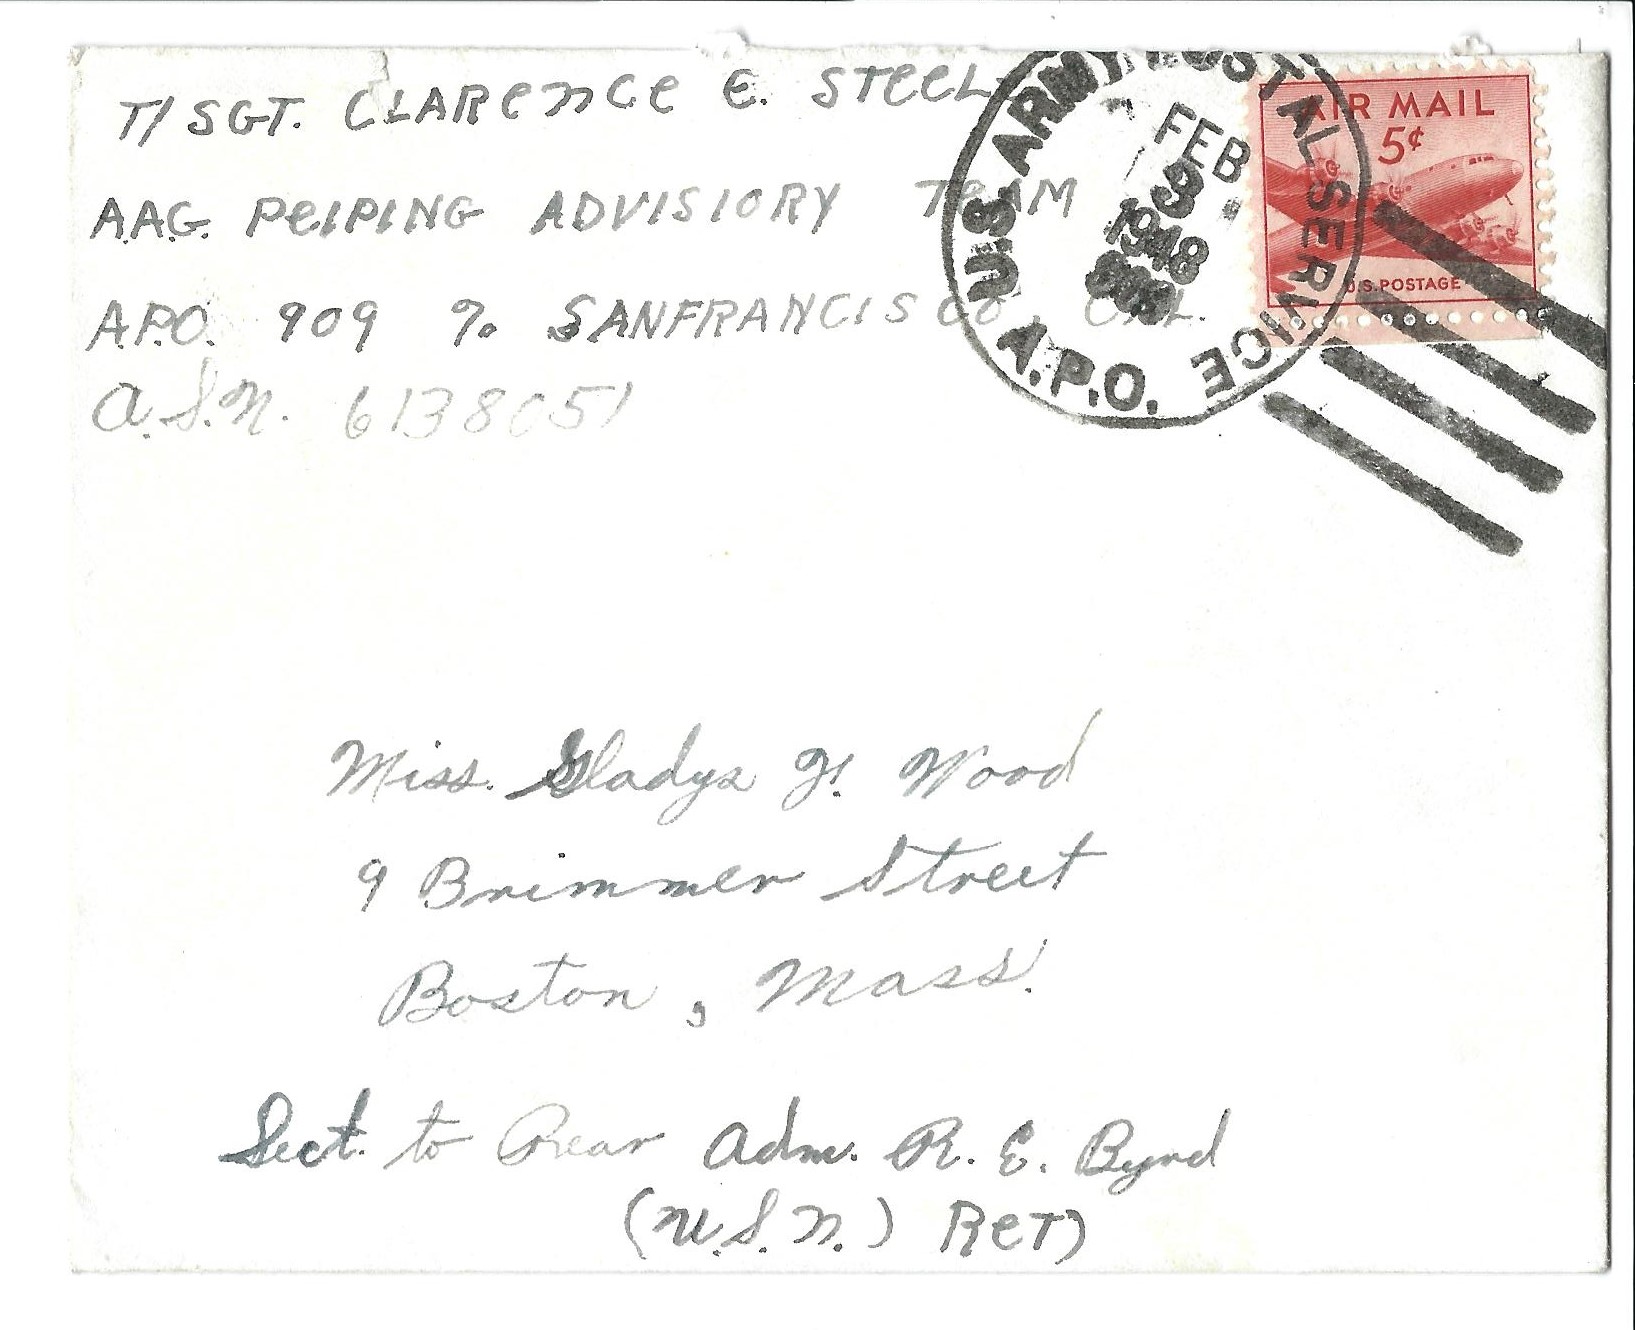 T/SGT. CLARENCE E. STEEL
A.A.G. PEIPING ADVISIORY TEAM
A.P.O. 909 % SANFRANCISCO, CAL.
A.S.N. 6138051
U.S. ARMY POSTAL SERVICE
A.P.O.
FEB
1948
AIR MAIL
5¢
U.S. POSTAGE
Miss. Gladys Wood
9 Brimmer Street
Boston, Mass.
Sect. to Rear Adm. R. E. Byrd
(U.S.N.) RET)